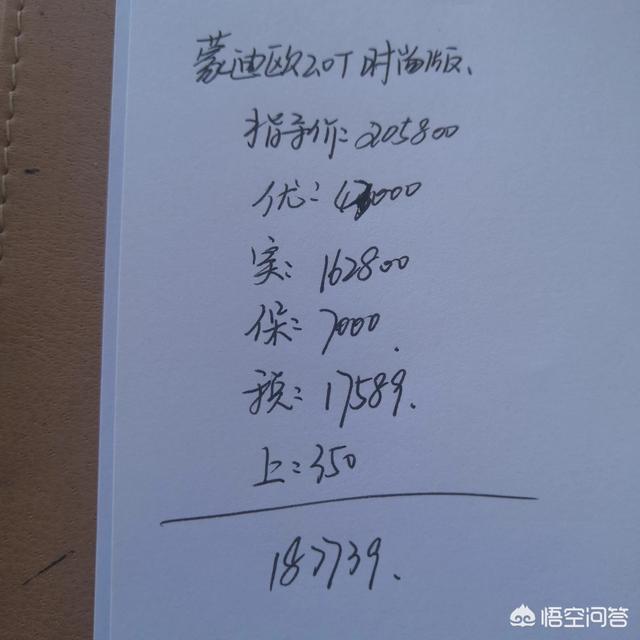 蒙迪欧2.0T时尚版、
指导价：205800
优：43000
实：162800
保：7000.
税：17589.
上：350
187739.
悟空问答